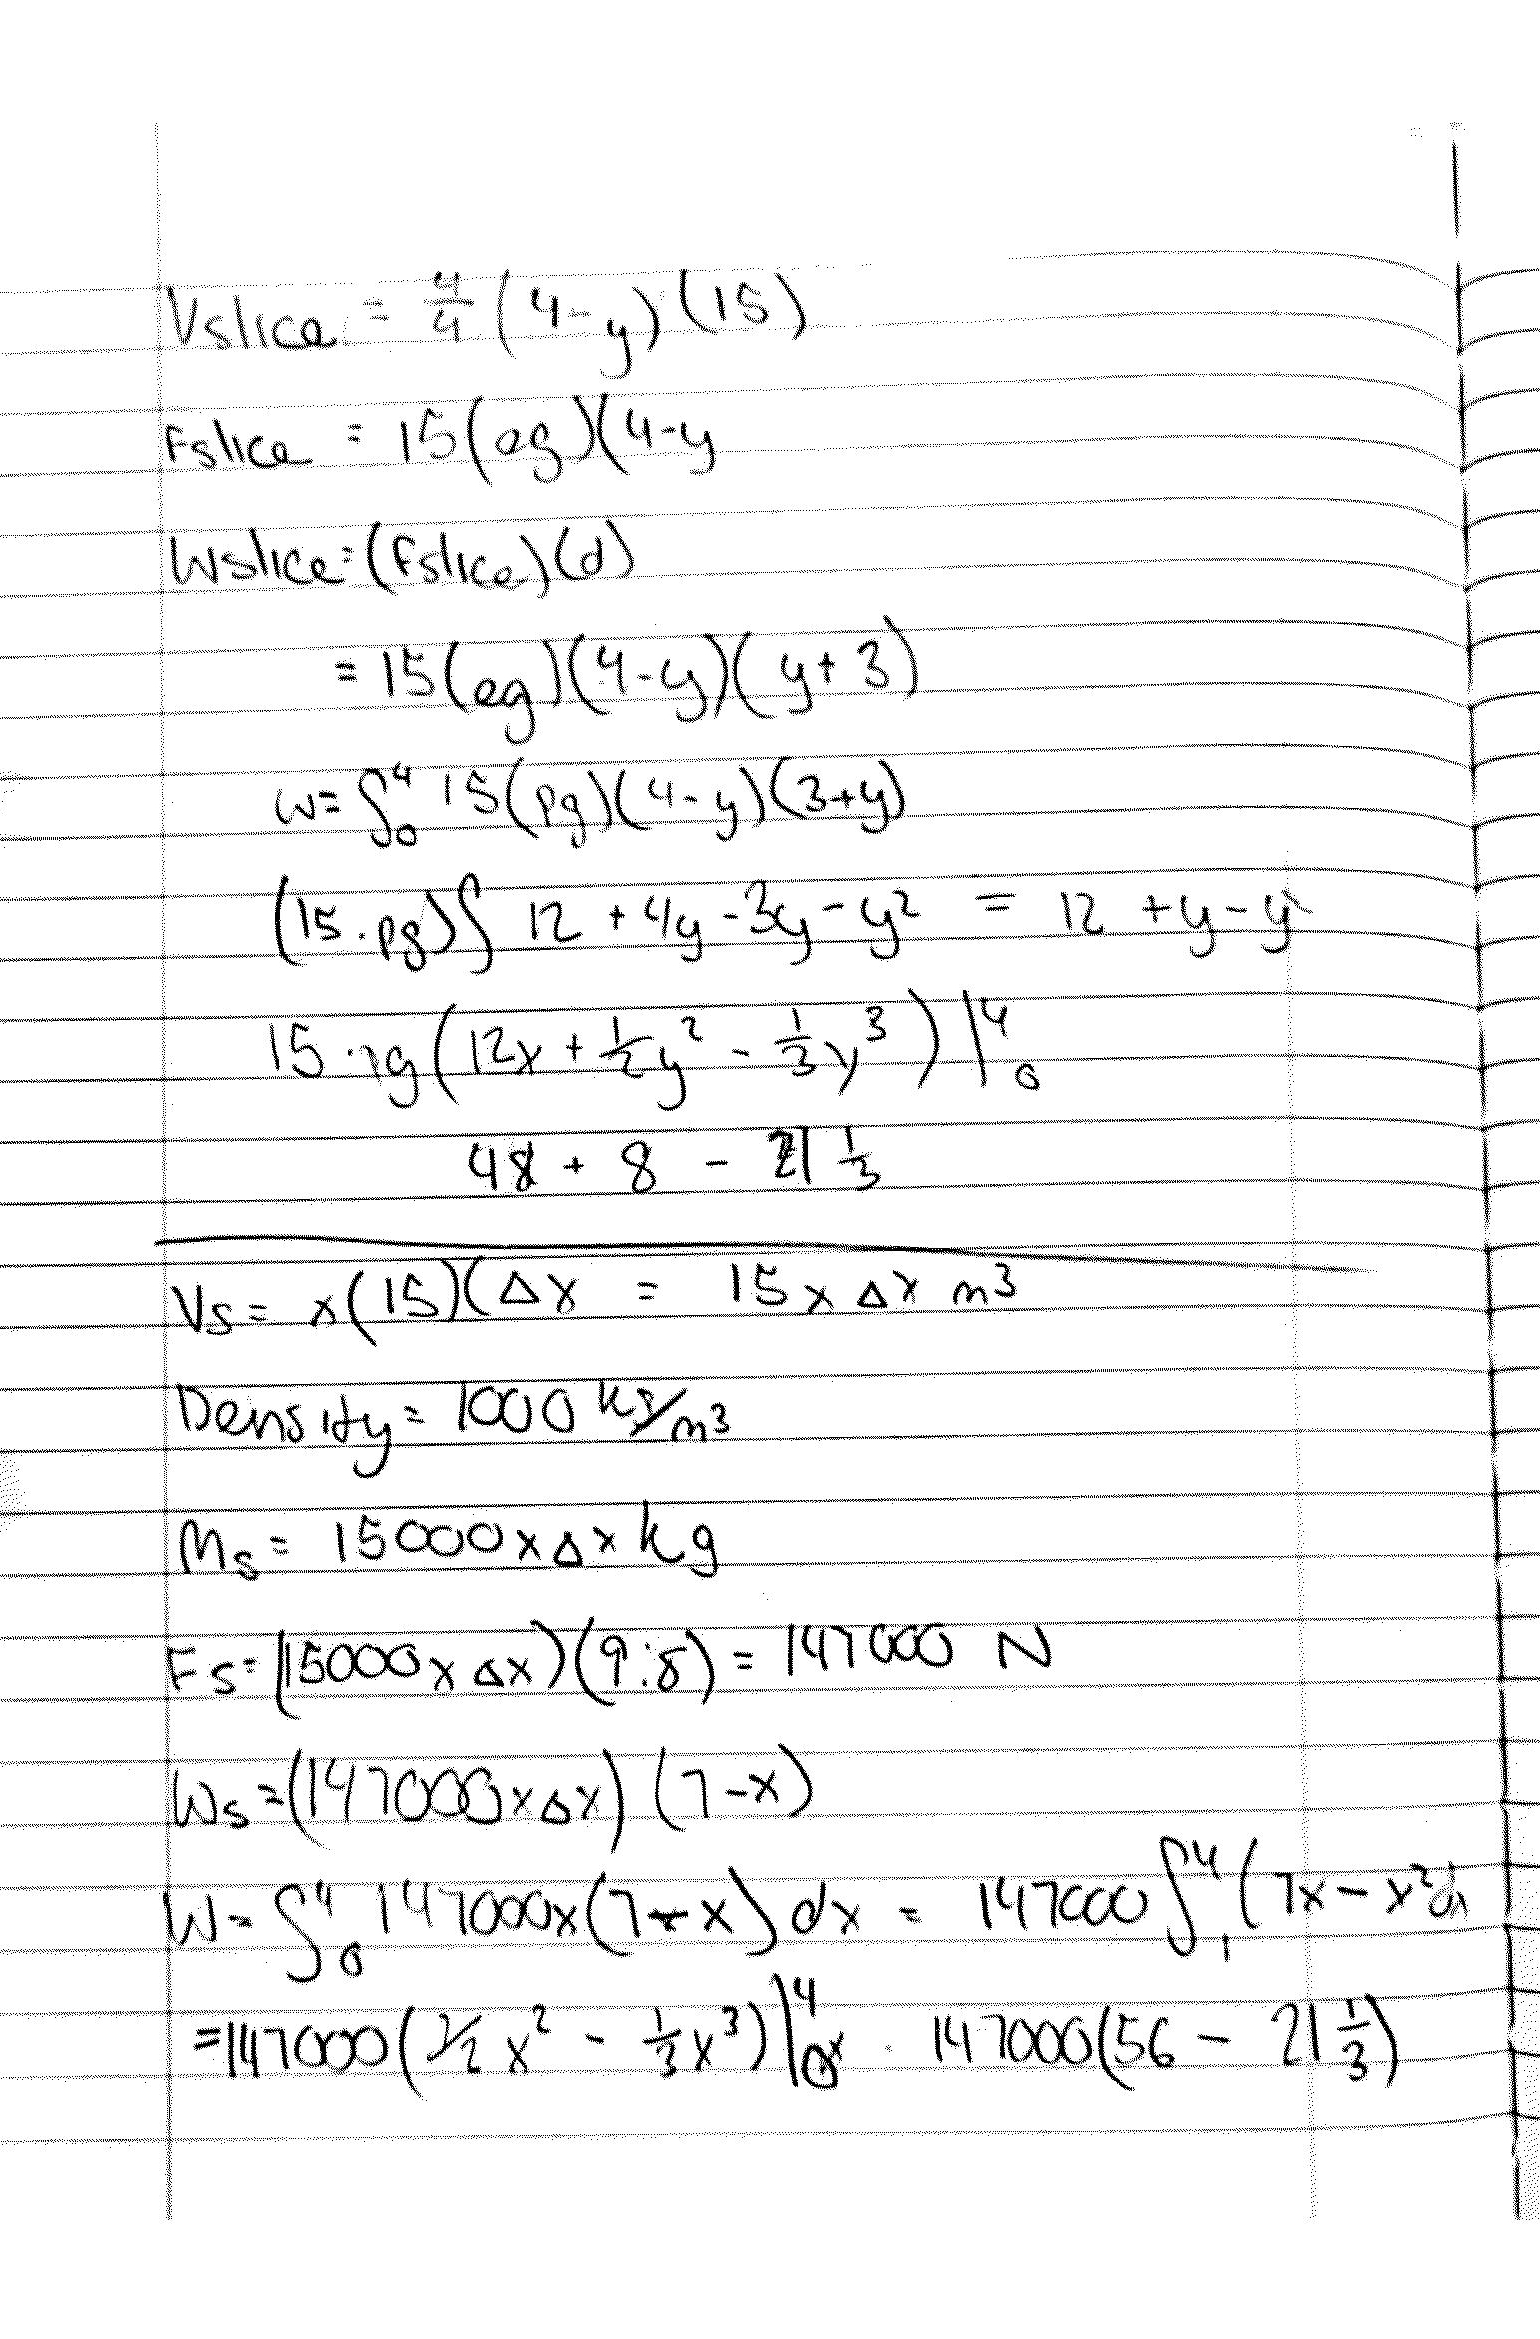 Vslice = 4/4 (4-y)(15)
Fslice = 15(ρg)(4-y
Wslice=(Fslice)(d)
= 15(ρg)(4-y)(y+3)
W= ∫₀⁴ 15(ρg)(4-y)(3+y)
(15·ρg)∫ 12 + 4y - 3y - y² = 12 + y - y²
15·ρg(12x + 1/2 y² - 1/3 y³)|₀⁴
48 + 8 - 21 1/3
Vs = x(15)(Δx = 15xΔx m³
Density = 1000 kg/m³
Ms = 15000xΔx kg
Fs=(15000xΔx)(9.8) = 147000 N
Ws=(147000xΔx)(7-x)
W= ∫₀⁴ 147000x(7-x)dx = 147000∫₁⁴(7x - x²dx
=147000(7/2 x² - 1/3 x³)|₀⁴ · 147000(56 - 21 1/3)